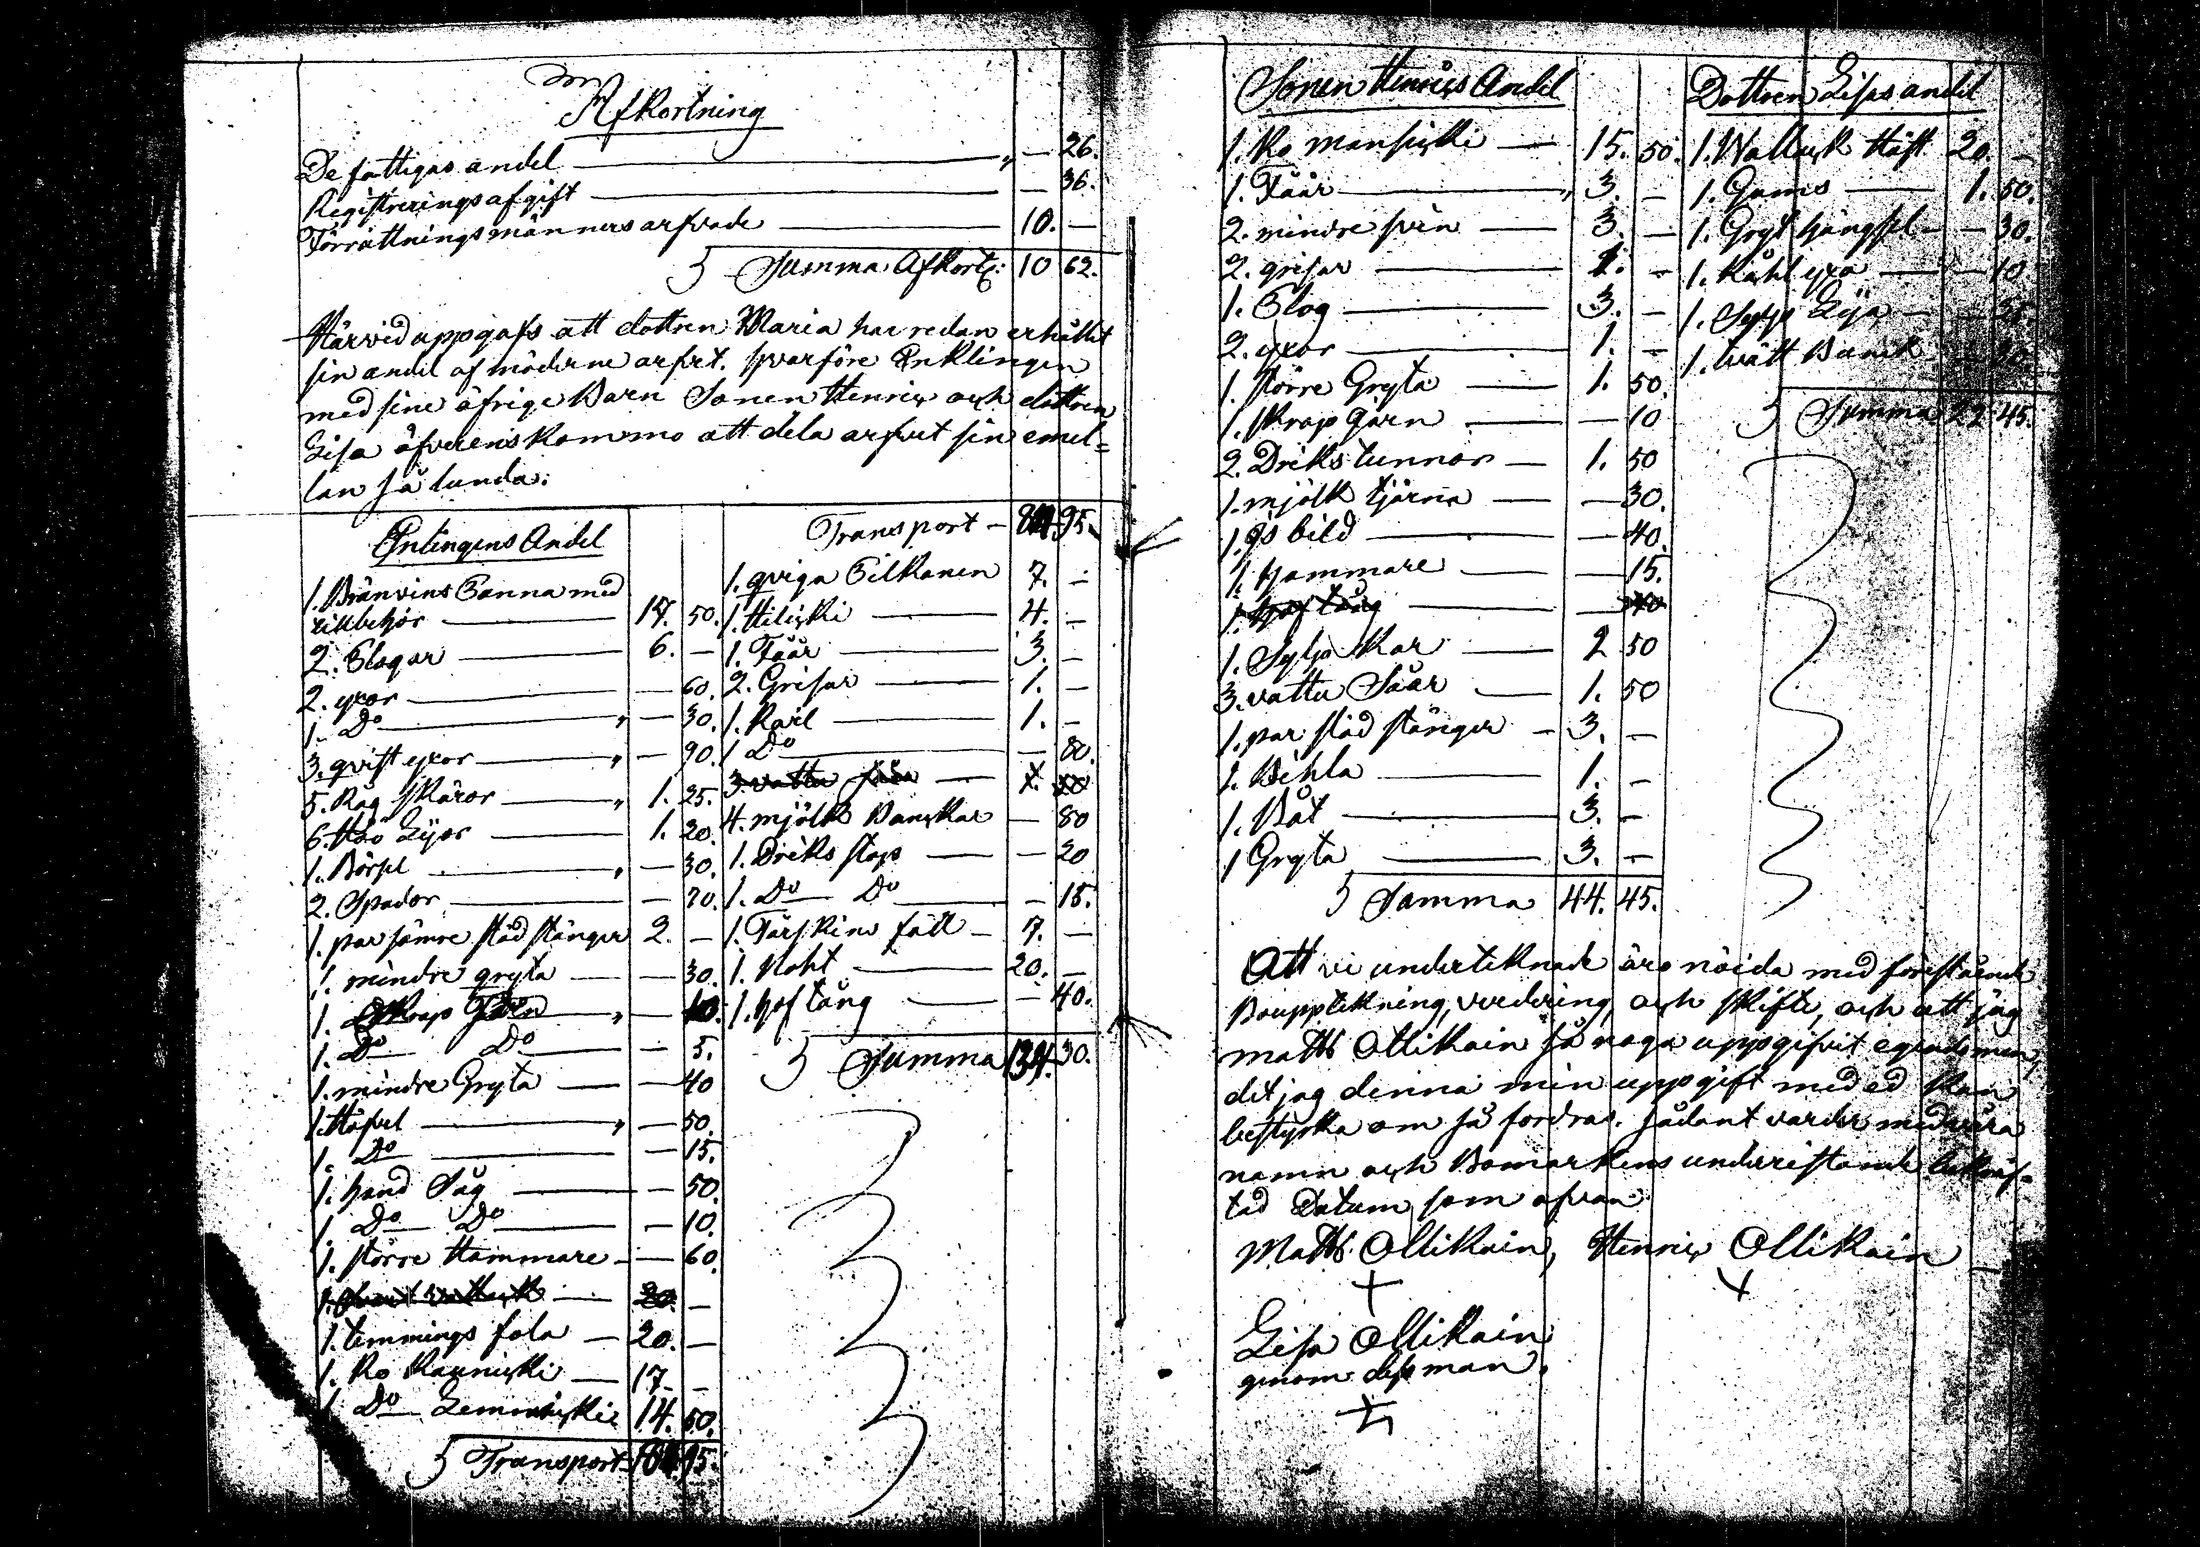 Afkortning
De fattigas andel — 26.
Registrerings afgift — 36.
Förrättningsmänners arfvode 10. —
Summa Afkortg: 10 62.
Härvid uppgafs att dottren Maria har redan erhållit
sin andel af möderne arfvet. hvarföre Enklingen
med sine öfrige Barn Sonen Henric och dottren
Lisa öfverenskommo att dela arfvet sin emel=
lan så lunda:
Enklingens Andel
1. Bränvins Panna med
tillbehör 17. 50.
2. Plogar 6. —
2. yxor — 60.
1. Do — 30.
3. qvist yxor — 90.
5. Råg skäror 1. 25.
6. Höö Lijor 1. 20.
1. — 30.
2. Spador — 70.
1. par sämre städ stänger 2. —
1. mindre gryta — 30.
1. Skrap Järn — 10.
1. Do Do — 5.
1. mindre Gryta — 40
1. Häfvel — 50.
1. Do — 15.
1. hand Såg — 50.
1. Do Do — 10.
1. större Hammare — 60.
20. —
1. temmings fola 20. —
1. Ko Kauniki 17. —
1. Do 14. 50.
Transport 95.
Transport — 95.
1. qviga Silkanen 7. —
1. Hiliki 4. —
1. Fåår 3. —
2. Grisar 1. —
1. Karl 1. —
1 Do — 80.
3. vattu
4. mjölk Bunkar — 80
1. Driks stop — 20
1. Do Do — 15.
1. Fårskins fäll 7. —
1. Noht 20. —
1. hof tång — 40.
Summa 134. 30.
Sonen Henrics Andel
1. Ko mansicki 15. 50.
1. Fåår 3. —
2. mindre svin 3. —
2. grisar 1. —
1. Plog 3. —
2. yxor 1. —
1. större Gryta 1. 50.
1. skrap Järn — 10
2. Driks tunnor 1. 50
1. mjölk tjärna — 30.
1. Is bild — 40.
1. hammare — 15.
1. hof tång
1. Sylp kar 2 50
3. vattu Såår 1. 50
1. par städ stänger 3. —
1. Kihla 1. —
1. Båt 3. —
1 Gryta 3. —
Summa 44. 45.
Dottren Lisas andel
1. Vallack Häst 20. —
1. 1. 50.
1. Gryt hängsel — 30.
1. Kåhl yxa — 10
1. Lija
1. tvätt Bunk
Summa 22 45.
Att vi undertiknade äro nöida med förestående
Bouppteckning, vredering och skifte, och att jag
Matts Ollikain så noga uppgifvit egendomen,
det jag denna min uppgift med ed kan
bestyrka om så fordras. sådant varder med våra
namn och Bomärkens underristande bekräf=
tad Datum som ofvan
Matts Ollikain, Henric Ollikain
Lisa Ollikain
genom dess man